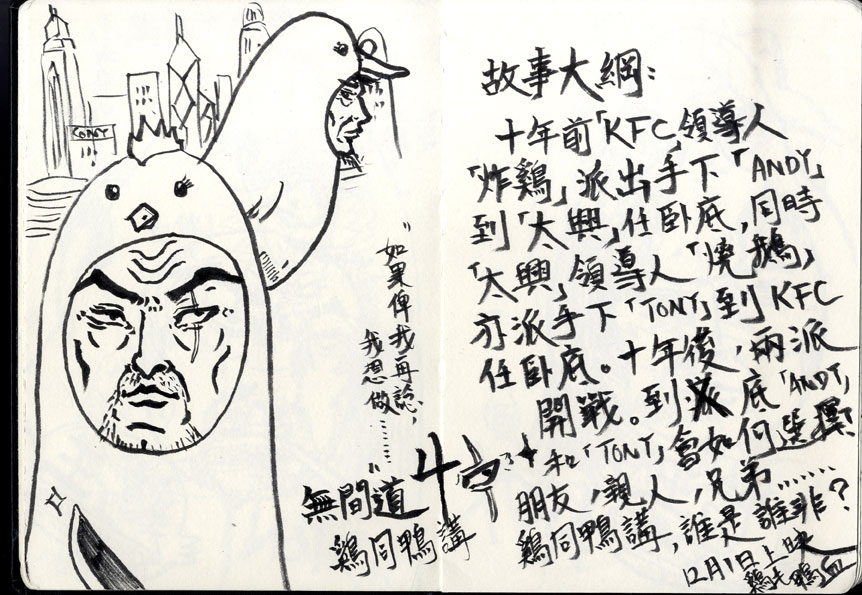 “如果俾我再諗，
我想做……”
無間道4
鷄同鴨講
故事大綱：
十年前「KFC」領導人
「炸鷄」派出手下「ANDY」
到「太興」任卧底，同時
「太興」領導人「燒鵝」
亦派手下「TONY」到KFC
任卧底。十年後，兩派
開戰。到底「ANDY」
和「TONY」會如何選擇
朋友，親人，兄弟……
鷄同鴨講，誰是誰非？
12月1日上映